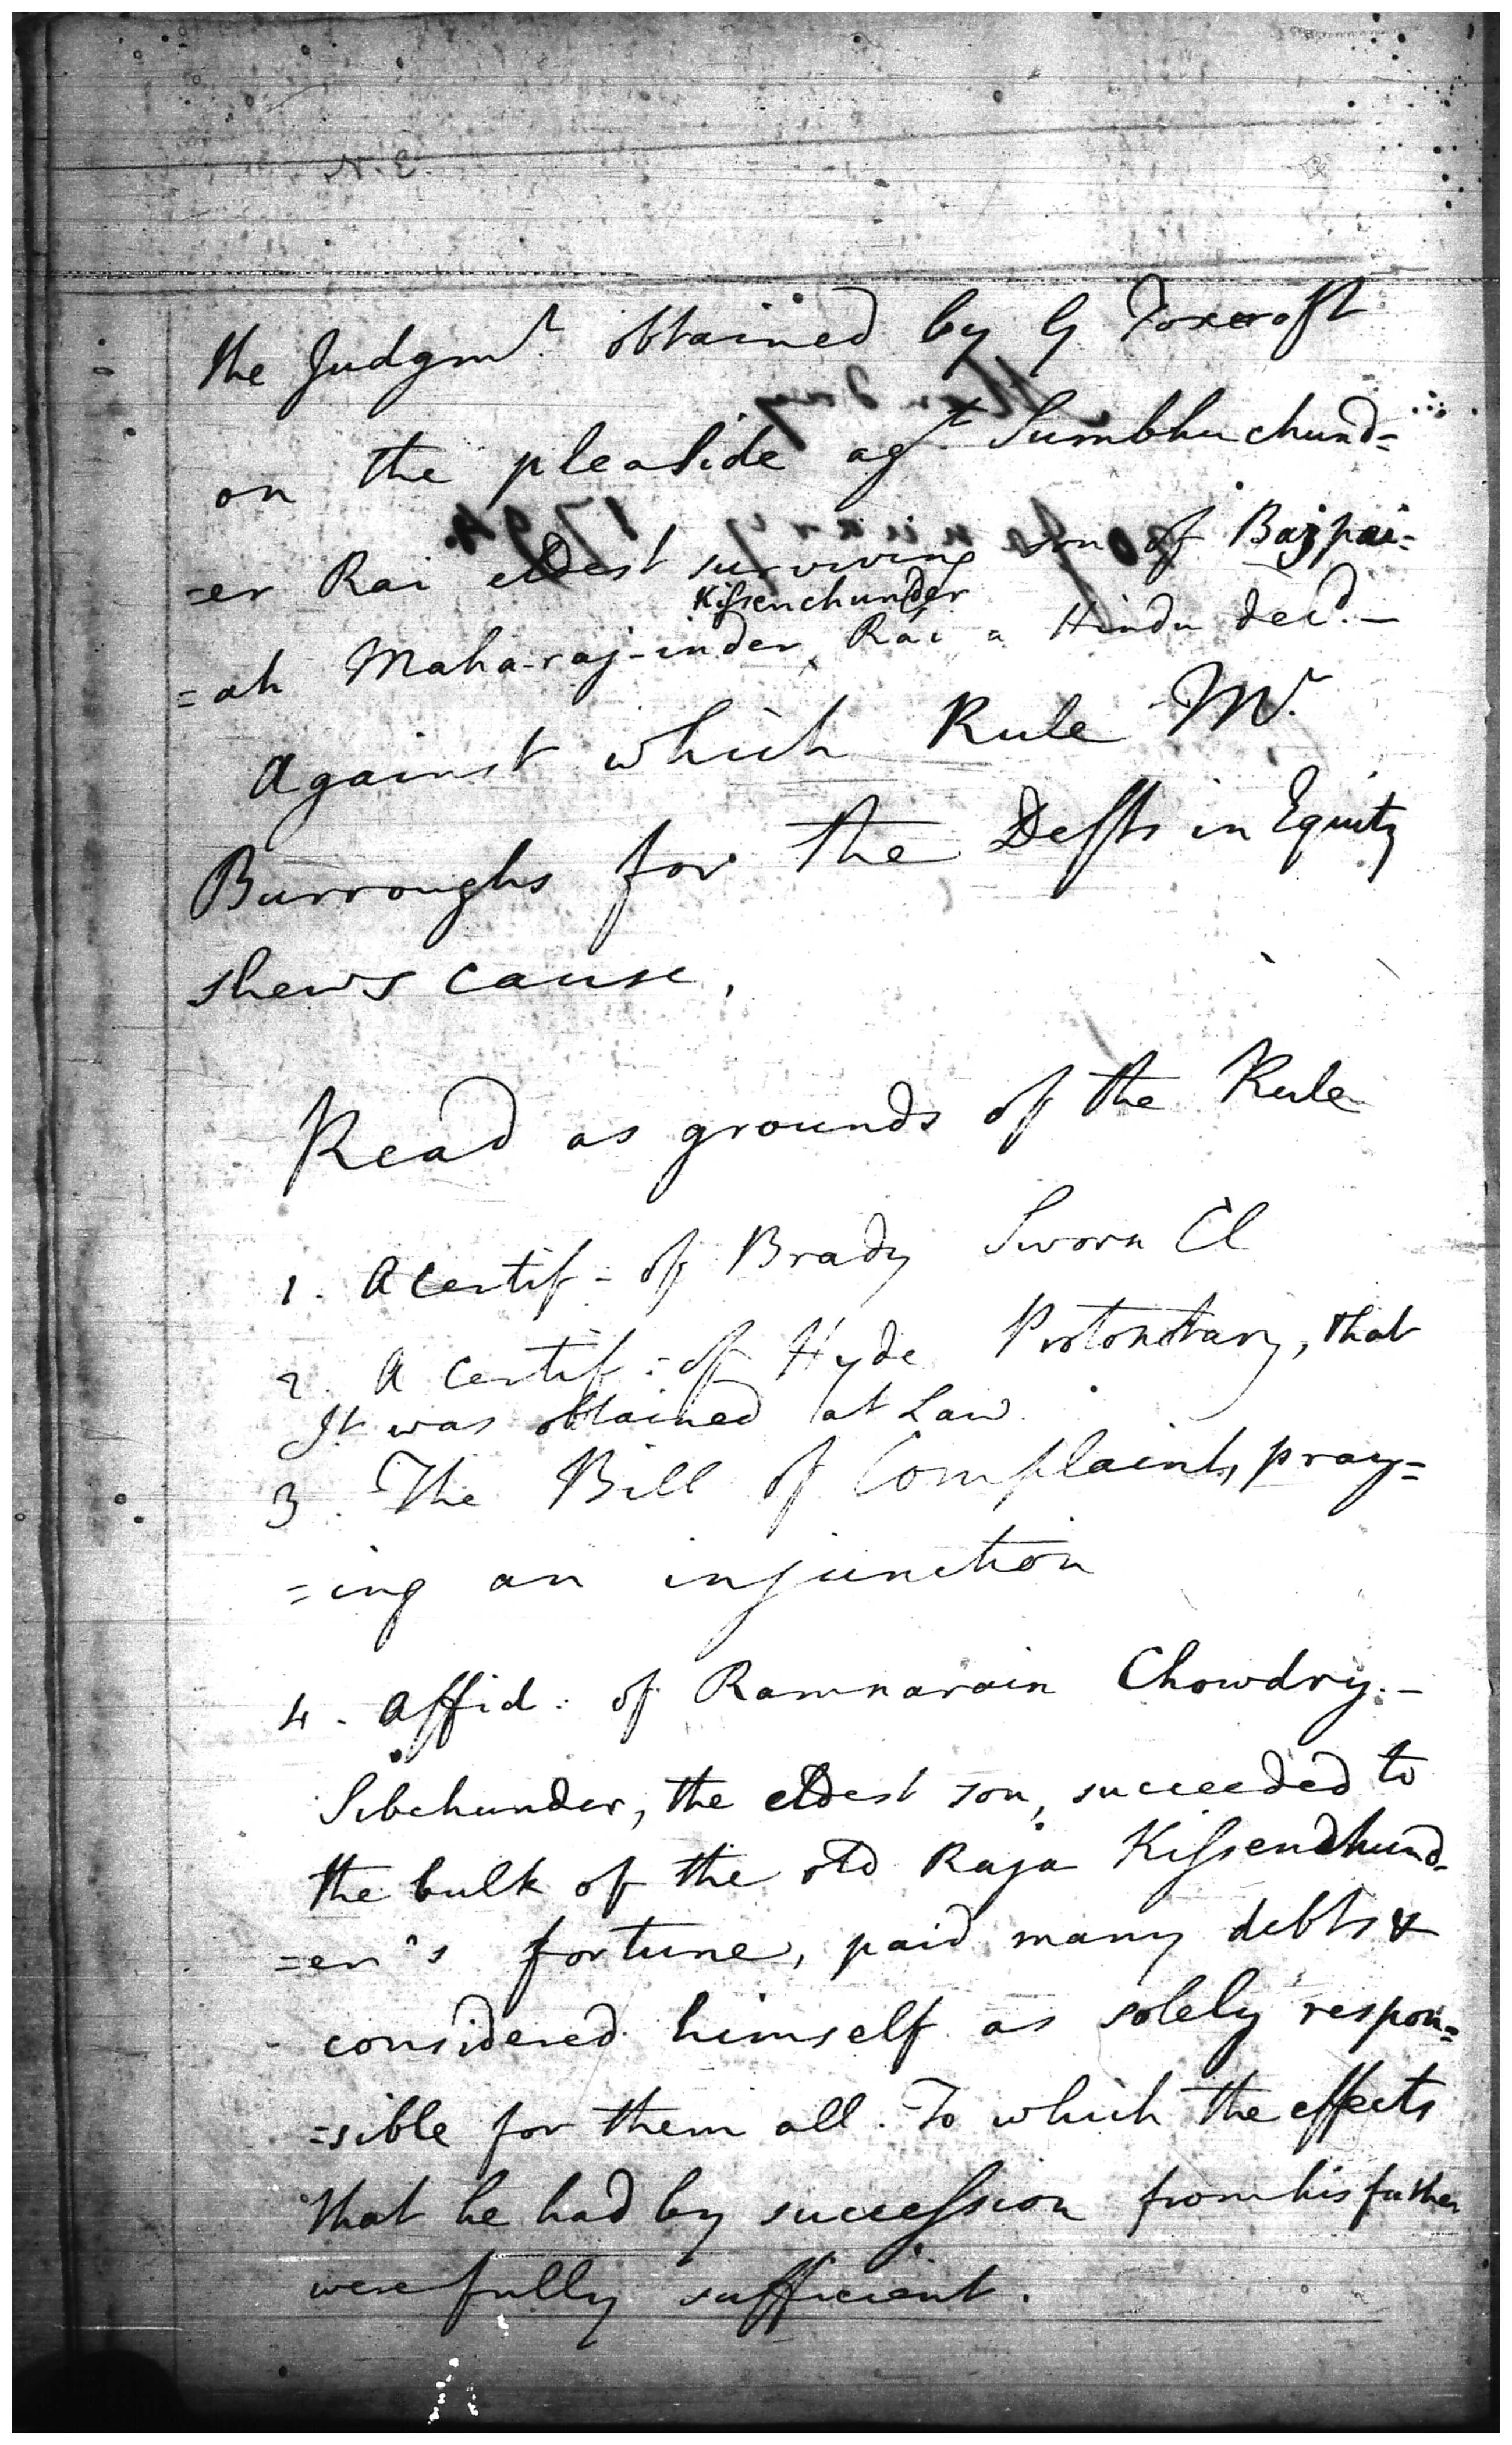 N.E.
the Judgmt. obtained by G Foxcroft
on the pleaside agt. Sumbhuchund=
=er Rai eldest surviving son of Bajpai=
Kissenchunder
=ah Maha-raj-inder Rai a Hindu decd.—
Against which Rule Mr.
Burroughs for the Defts in Equity
shews cause,
Read as grounds of the Rule
1. A certif= of Brady Sworn Cl
2. A certif= of Hyde Protonotary, that
Jt was obtained at Law.
3. The Bill of Complaint, pray=
=ing an injunction
4. Affid: of Ramnarain Chowdry.—
Sibchunder, the eldest son, succeeded to
the bulk of the old Raja Kissenchund=
=er's fortune, paid many debts &
considered himself as solely respon=
=sible for them all. To which the effects
that he had by succession from his father
were fully sufficient.